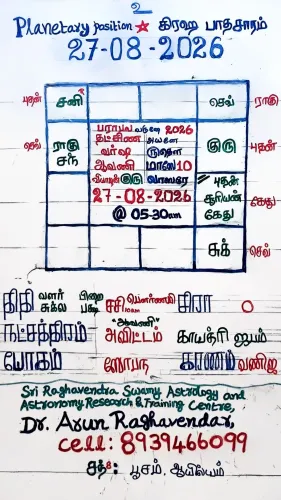 2
Planetary position ☆ கிரஹ பாதசாரம்
27-08-2026
புதன் சனி செவ் ராகு
செவ் ராகு சந் குரு புதன்
பராபவ வருடம் 2026
தட்சிண அயனம்
வர்ஷ ருதௌ
ஆவணி மாஸே 10
குரு வாஸரே
27-08-2026
@ 05-30am
புதன்
சூரியன்
கேது கேது
சுக் செவ்
திதி வளர் பிறை சுக்ல பக்ஷ பௌர்ணமி
நட்சத்திரம் "ஆவணி" அவிட்டம் காயத்ரி ஜபம்
யோகம் சோபந கரணம் வணிஜ
Sri Raghavendra Swamy Astrology and
Astronomy Research & Training Centre,
Dr. Arun Raghavendar,
cell: 8939466099
பூசம், ஆயில்யம்